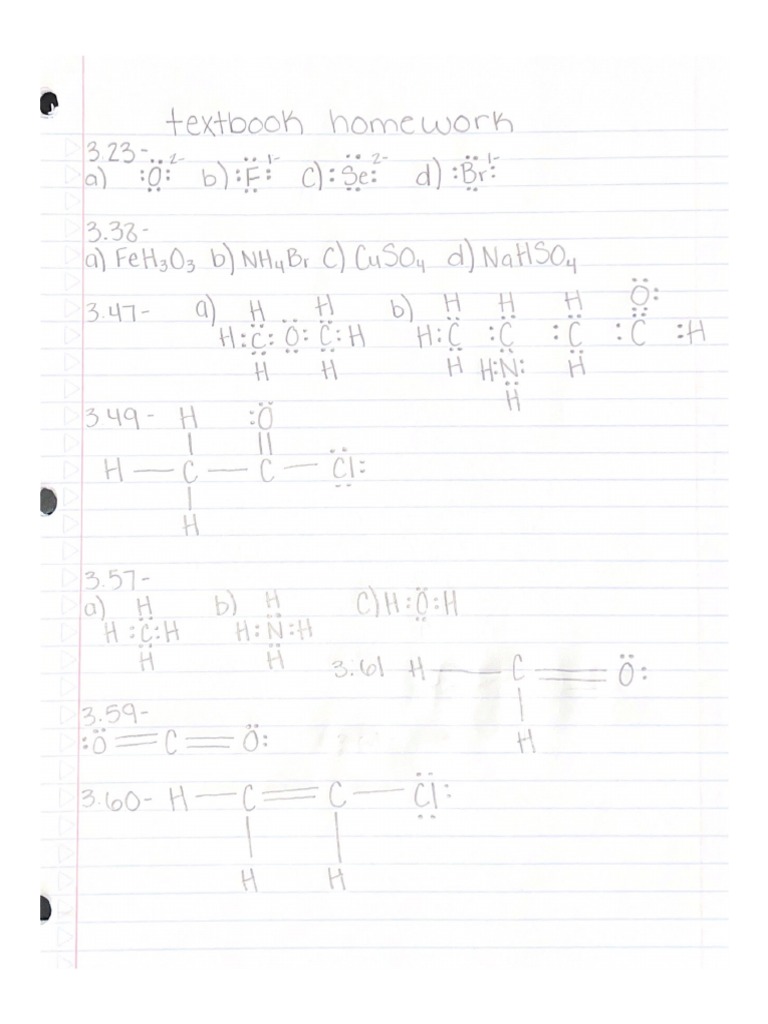 textbook homework
3.23-
a) :Ö:²⁻ b) :F̈:¹⁻ c) :S̈e:²⁻ d) :B̈r:¹⁻
3.38-
a) FeH₃O₃ b) NH₄Br c) CuSO₄ d) NaHSO₄
3.47- a) H H b) H H H Ö:
H:C̈:Ö:C̈:H H:C̈ :C̈ :C̈ :C̈ :H
H H H H:N̈: H
H
3.49- H :Ö
| ||
H — C — C — C̈l:
|
H
3.57-
a) H b) H c) H:Ö:H
H:C̈:H H:N̈:H
H H
3.61 H — C = Ö:
|
H
3.59-
:Ö = C = Ö:
3.60- H — C = C — C̈l:
| |
H H